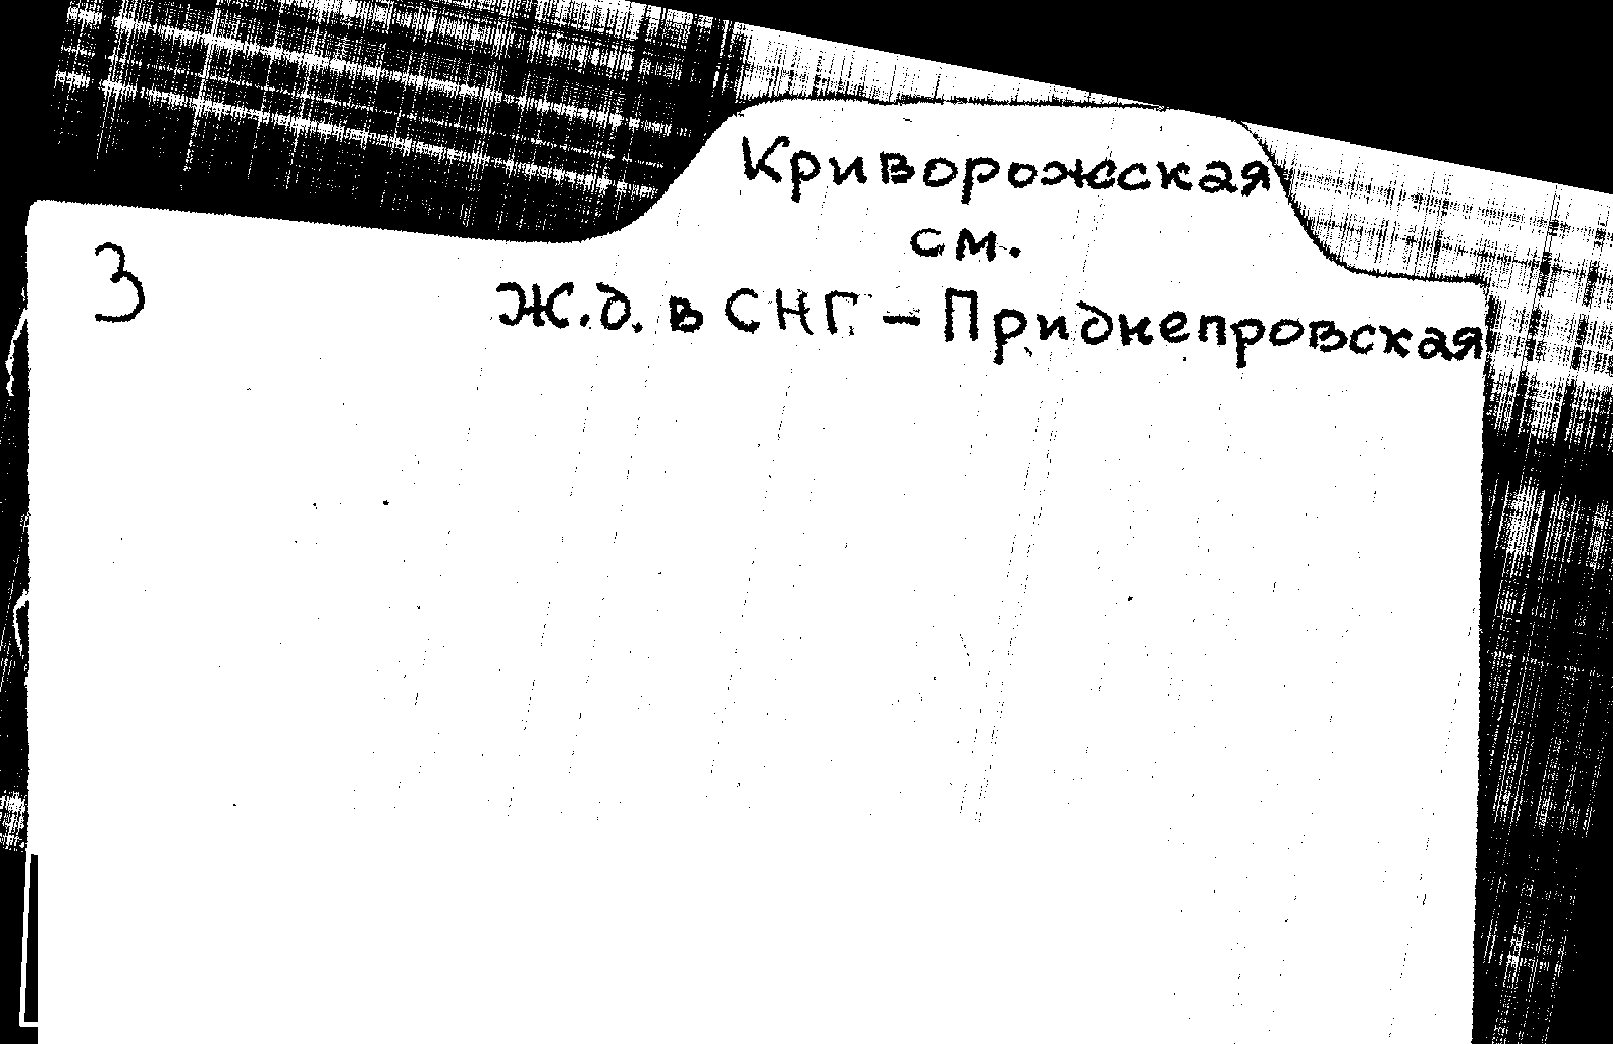 Криворожская
см.
3
Ж.д. в СНГ – Приднепровская